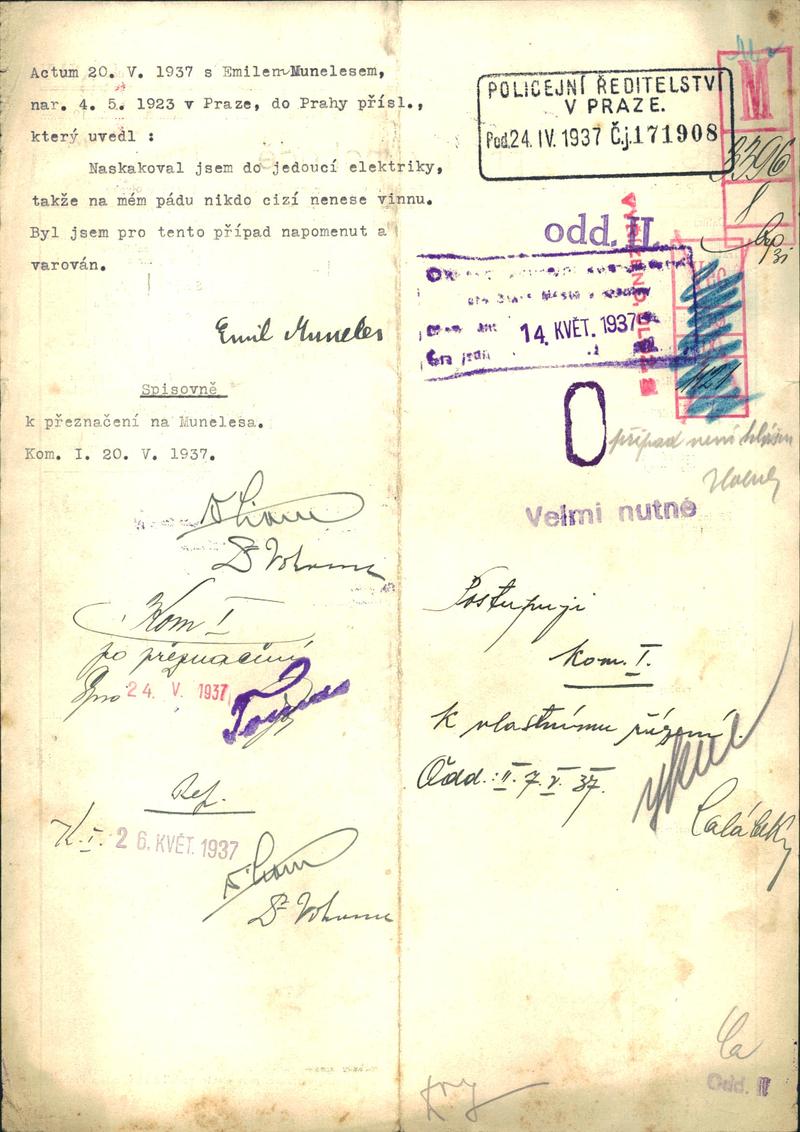 Actum 20. V. 1937 s Emilem Munelesem,
nar. 4. 5. 1923 v Praze, do Prahy přísl.,
který uvedl :
Naskakoval jsem do jedoucí elektriky,
takže na mém pádu nikdo cizí nenese vinnu.
Byl jsem pro tento případ napomenut a
varován.
Emil Muneles
Spisovně
k přeznačení na Munelesa.
Kom. I. 20. V. 1937.
Kom I
po přeznačení
24. V. 1937
Ref.
K. I. 26. KVĚT. 1937
POLICEJNÍ ŘEDITELSTVÍ
V PRAZE.
Pod. 24. IV. 1937 Č.j. 171908
M
3396
8
odd. II.
14. KVĚT. 1937
případ není hlášen
Velmi nutné
Postupuji
Kom. I.
k vlastnímu řízení.
Odd. II. 7. V. 37.
Odd. II